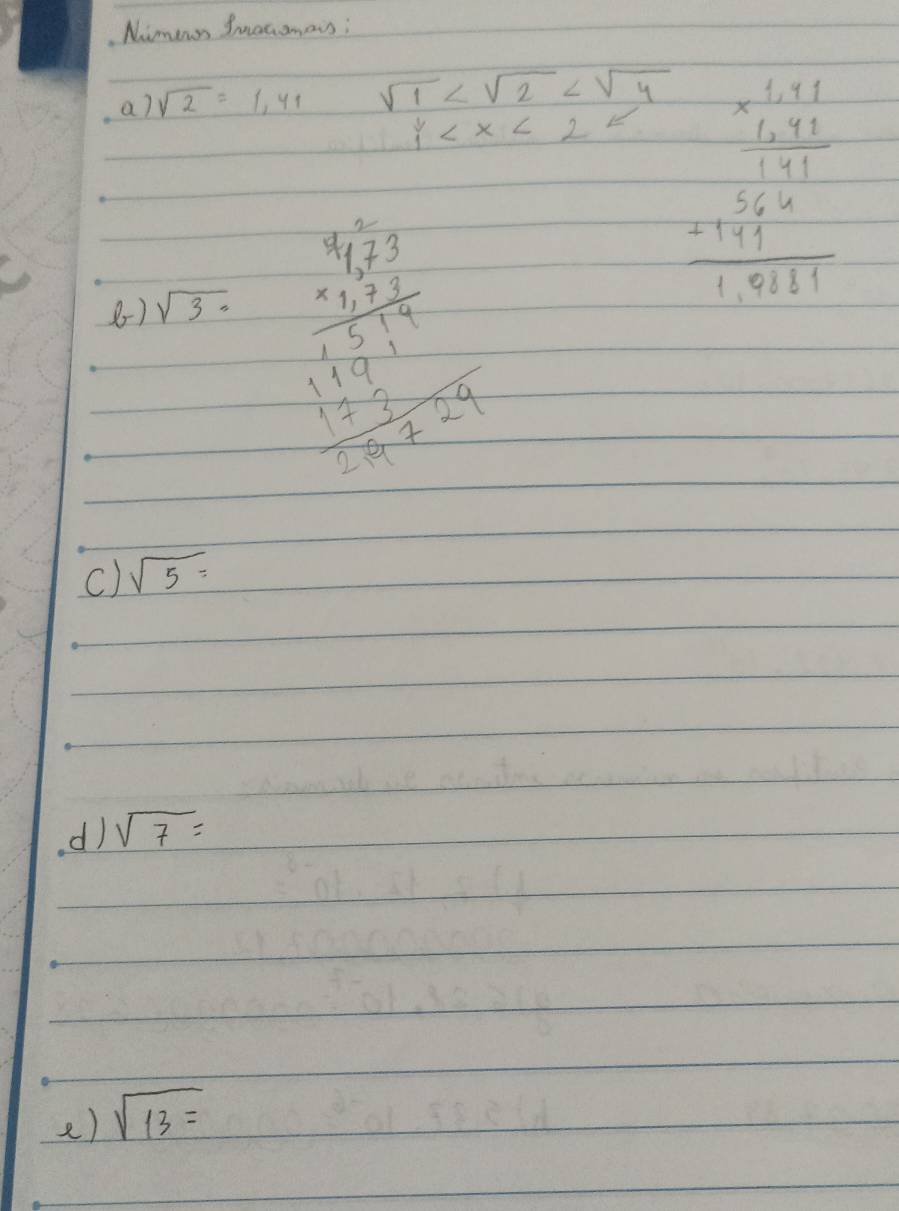 Números Irracionais:
a) √2 = 1,41 √1 < √2 < √4
1 < x < 2
1,41
× 1,41
141
564
+ 141
1,9881
b) √3 =
2
1,73
× 1,73
1519
1191
173
2,9729
c) √5 =
d) √7 =
e) √13 =